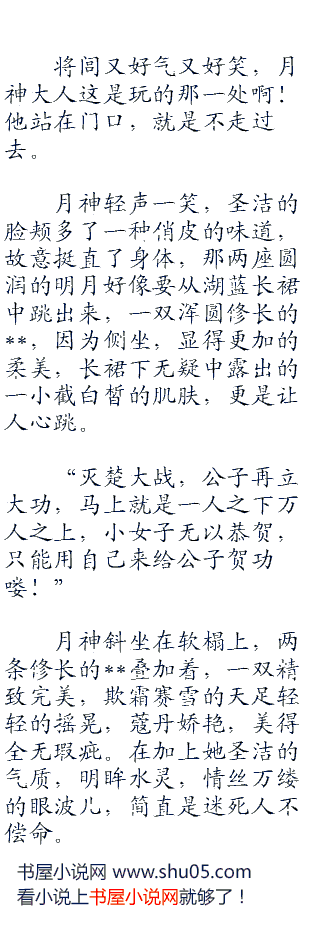 将闾又好气又好笑，月
神大人这是玩的那一处啊！
他站在门口，就是不走过
去。
月神轻声一笑，圣洁的
脸颊多了一种俏皮的味道，
故意挺直了身体，那两座圆
润的明月好像要从湖蓝长裙
中跳出来，一双浑圆修长的
**，因为侧坐，显得更加的
柔美，长裙下无疑中露出的
一小截白皙的肌肤，更是让
人心跳。
“灭楚大战，公子再立
大功，马上就是一人之下万
人之上，小女子无以恭贺，
只能用自己来给公子贺功
喽！”
月神斜坐在软榻上，两
条修长的**叠加着，一双精
致完美，欺霜赛雪的天足轻
轻的摇晃，蔻丹娇艳，美得
全无瑕疵。在加上她圣洁的
气质，明眸水灵，情丝万缕
的眼波儿，简直是迷死人不
偿命。
书屋小说网 www.shu05.com
看小说上书屋小说网就够了！